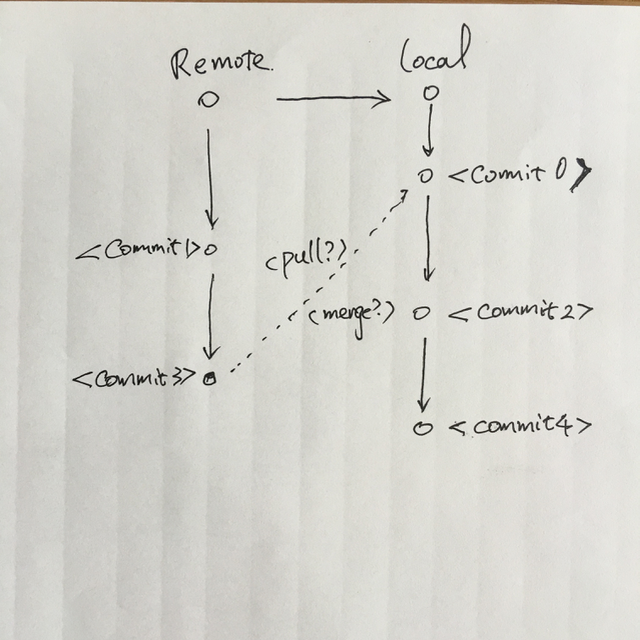 Remote
Local
<Commit 0>
<Commit1>
<pull?>
(merge?)
<Commit2>
<Commit3>
<commit4>